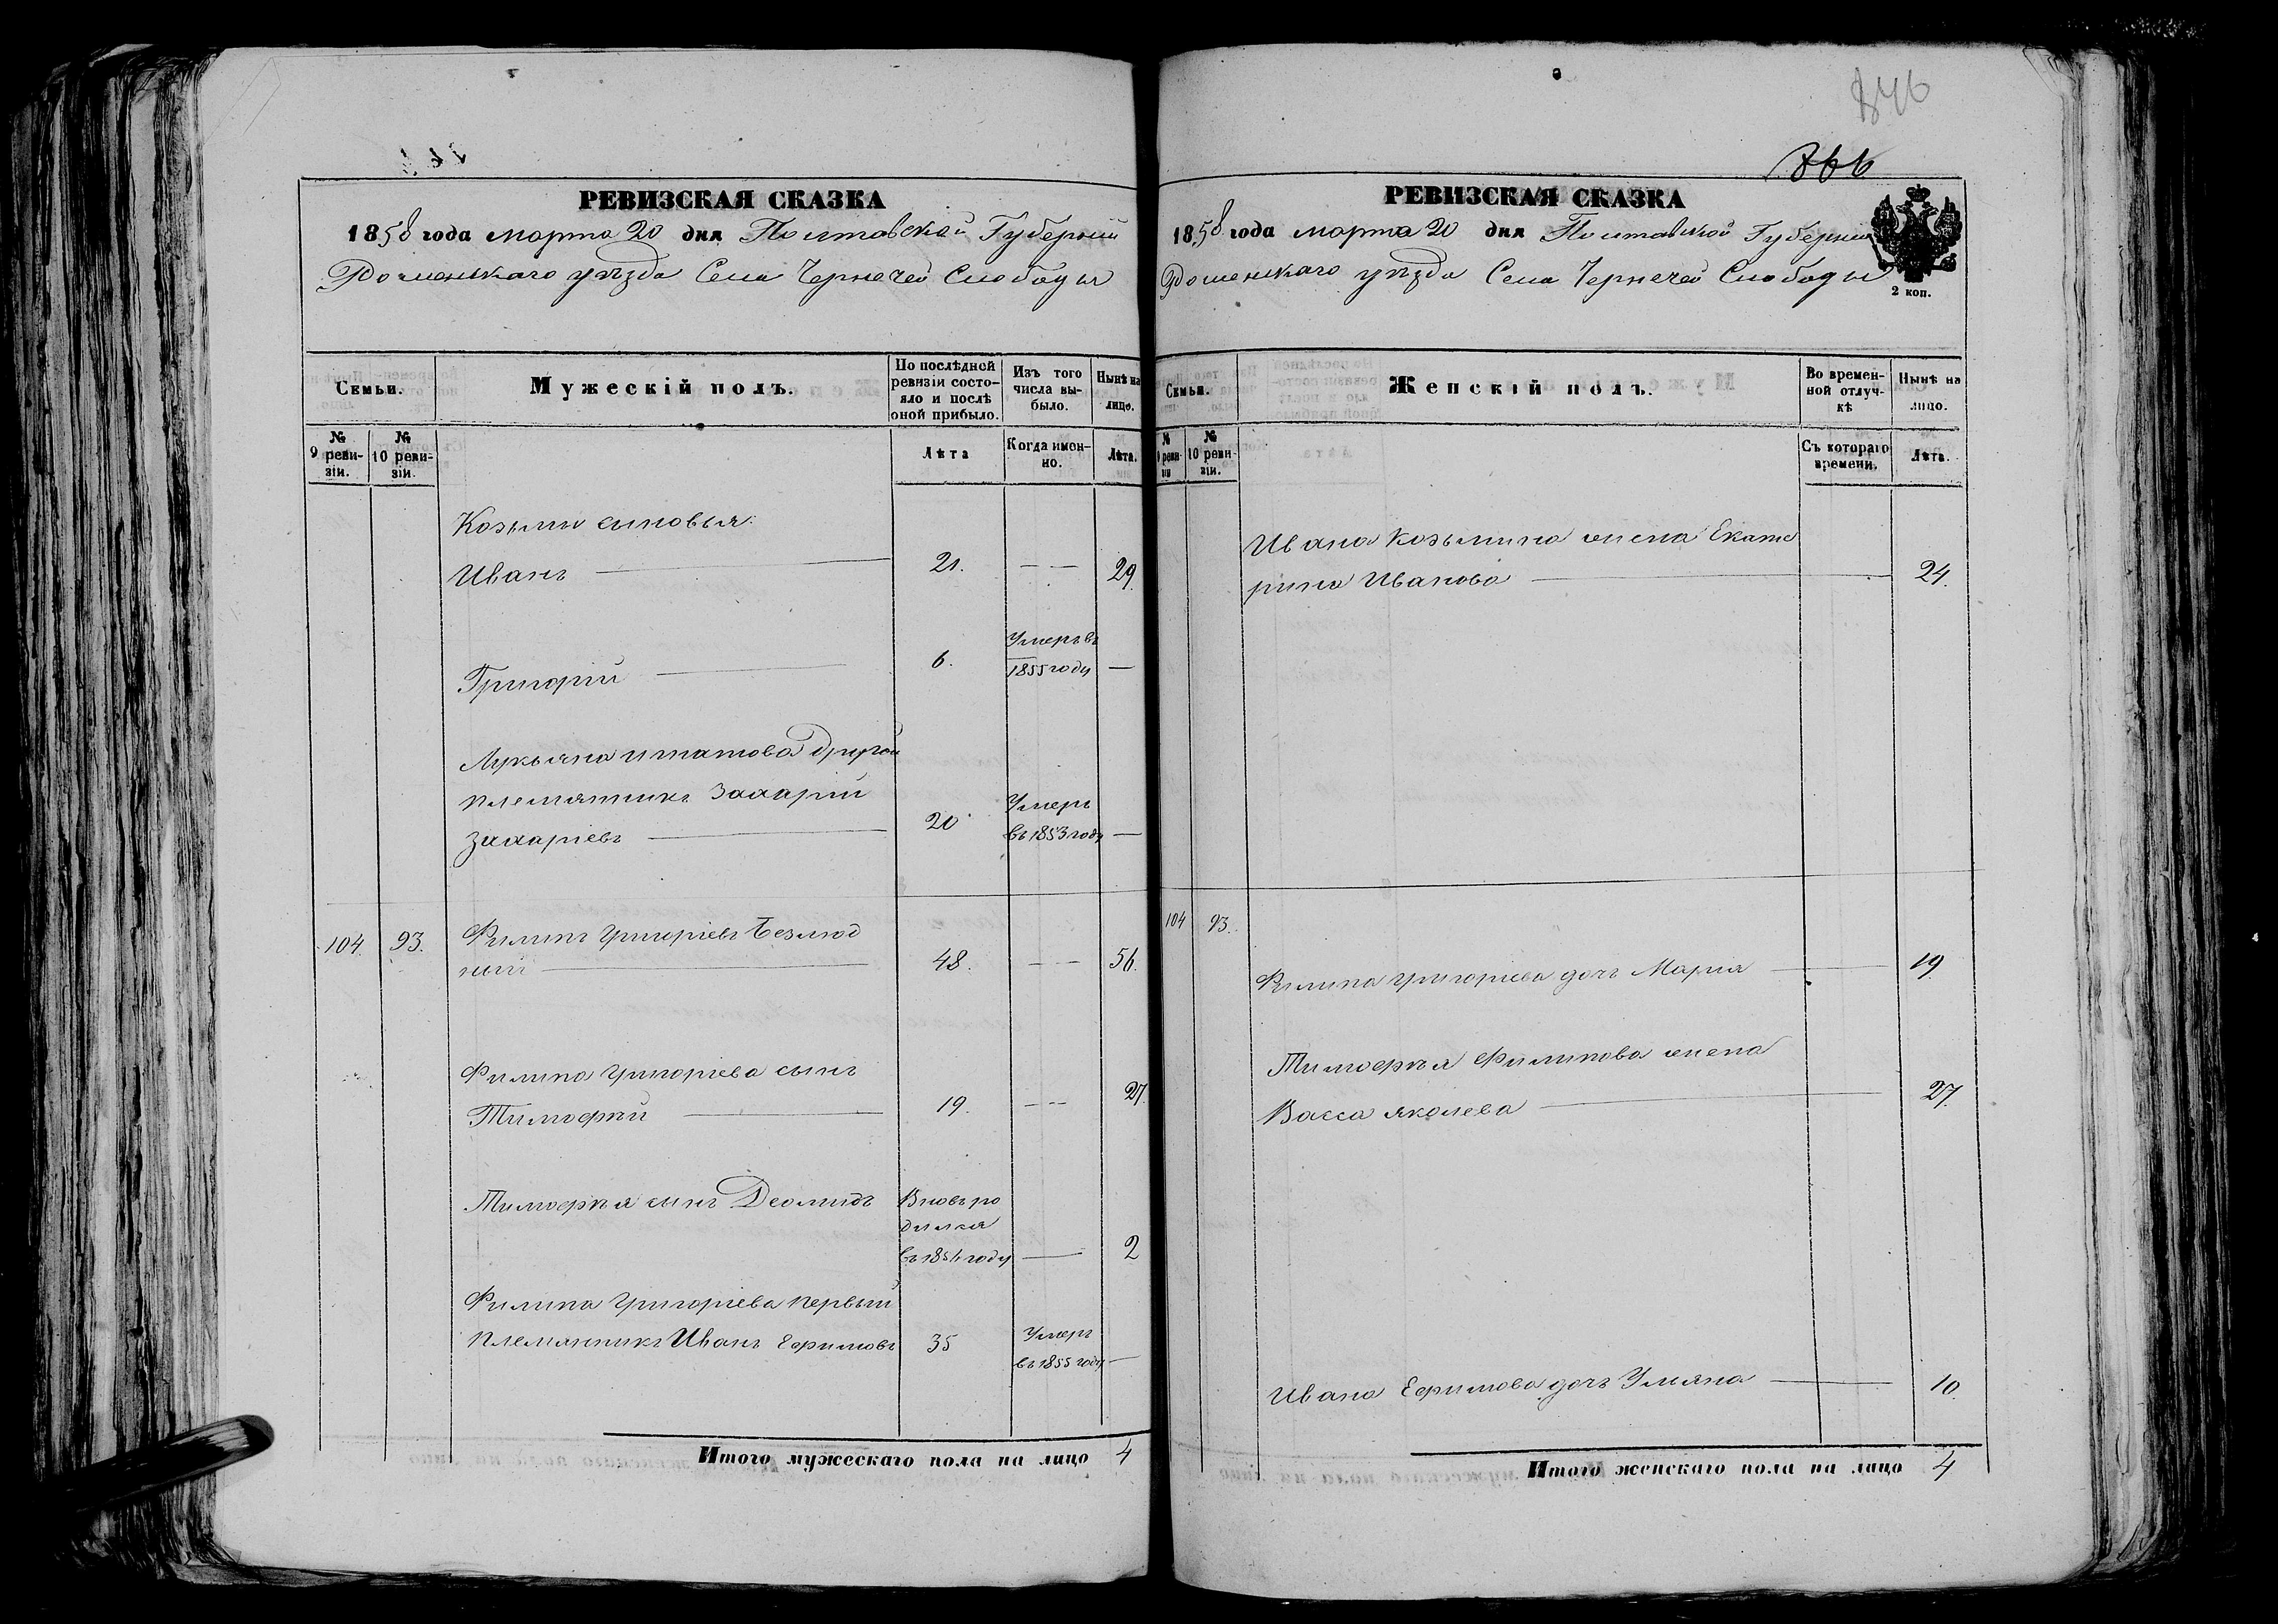 РЕВИЗСКАЯ СКАЗКА
1858 года марта 20 дня Полтавской Губерніи
Роменскаго уѣзда Села Чернечей Слободы
Семьи.
Мужескій полъ.
По послѣдней ревизіи состояло и послѣ оной прибыло.
Изъ того числа выбыло.
Нынѣ на лицо.
№ 9 ревизіи.
№ 10 ревизіи.
Лѣта
Когда именно.
Лѣта.
Козьмы сыновья:
Иванъ 21. 29.
Григорій 6. Умеръ въ 1855 году
Лукьяна Игнатова другой
племянникъ Захарій
Захаріевъ 20 Умеръ въ 1853 году
104. 93. Филипъ Григоріевъ Безлюд
ный 48. 56.
Филипа Григоріева сынъ
Тимофѣй 19. 27.
Тимофѣя сынъ Деомидъ Вновь ро
дился
въ 1856 году 2
Филипа Григоріева первый
племянникъ Иванъ Ефимовъ 35 Умеръ
въ 1855 году
Итого мужескаго пола на лицо 4
846
866
РЕВИЗСКАЯ СКАЗКА
1858 года марта 20 дня Полтавской Губерніи
Роменскаго уѣзда Села Чернечей Слободы
2 коп.
Семьи.
Женскій полъ.
Во временной отлучкѣ
Нынѣ на лицо.
№ 9 ревизіи
№ 10 ревизіи.
Съ котораго времени.
Лѣта.
Ивана Козьмина жена Екате
рина Иванова 24.
104 93.
Филипа Григоріева дочь Марія 19.
Тимофѣя Филипова жена
Васса Яколева 27.
Ивана Ефимова дочь Ульяна 10.
Итого женскаго пола на лицо 4